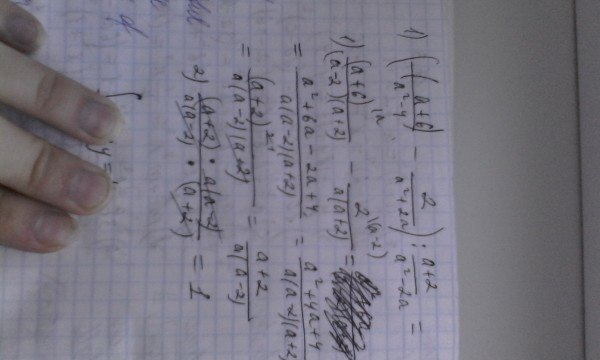 1) ((a+6)/(a²-4) - 2/(a²+2a)) : (a+2)/(a²-2a) =
1) (a+6)\a/((a-2)(a+2)) - 2\(a-2)/(a(a+2)) =
= (a²+6a-2a+4)/(a(a-2)(a+2)) = (a²+4a+4)/(a(a-2)(a+2))
= (a+2)²/(a(a-2)(a+2)) = (a+2)/(a(a-2))
2) (a+2)·a(a-2)/(a(a-2)·(a+2)) = 1
y=